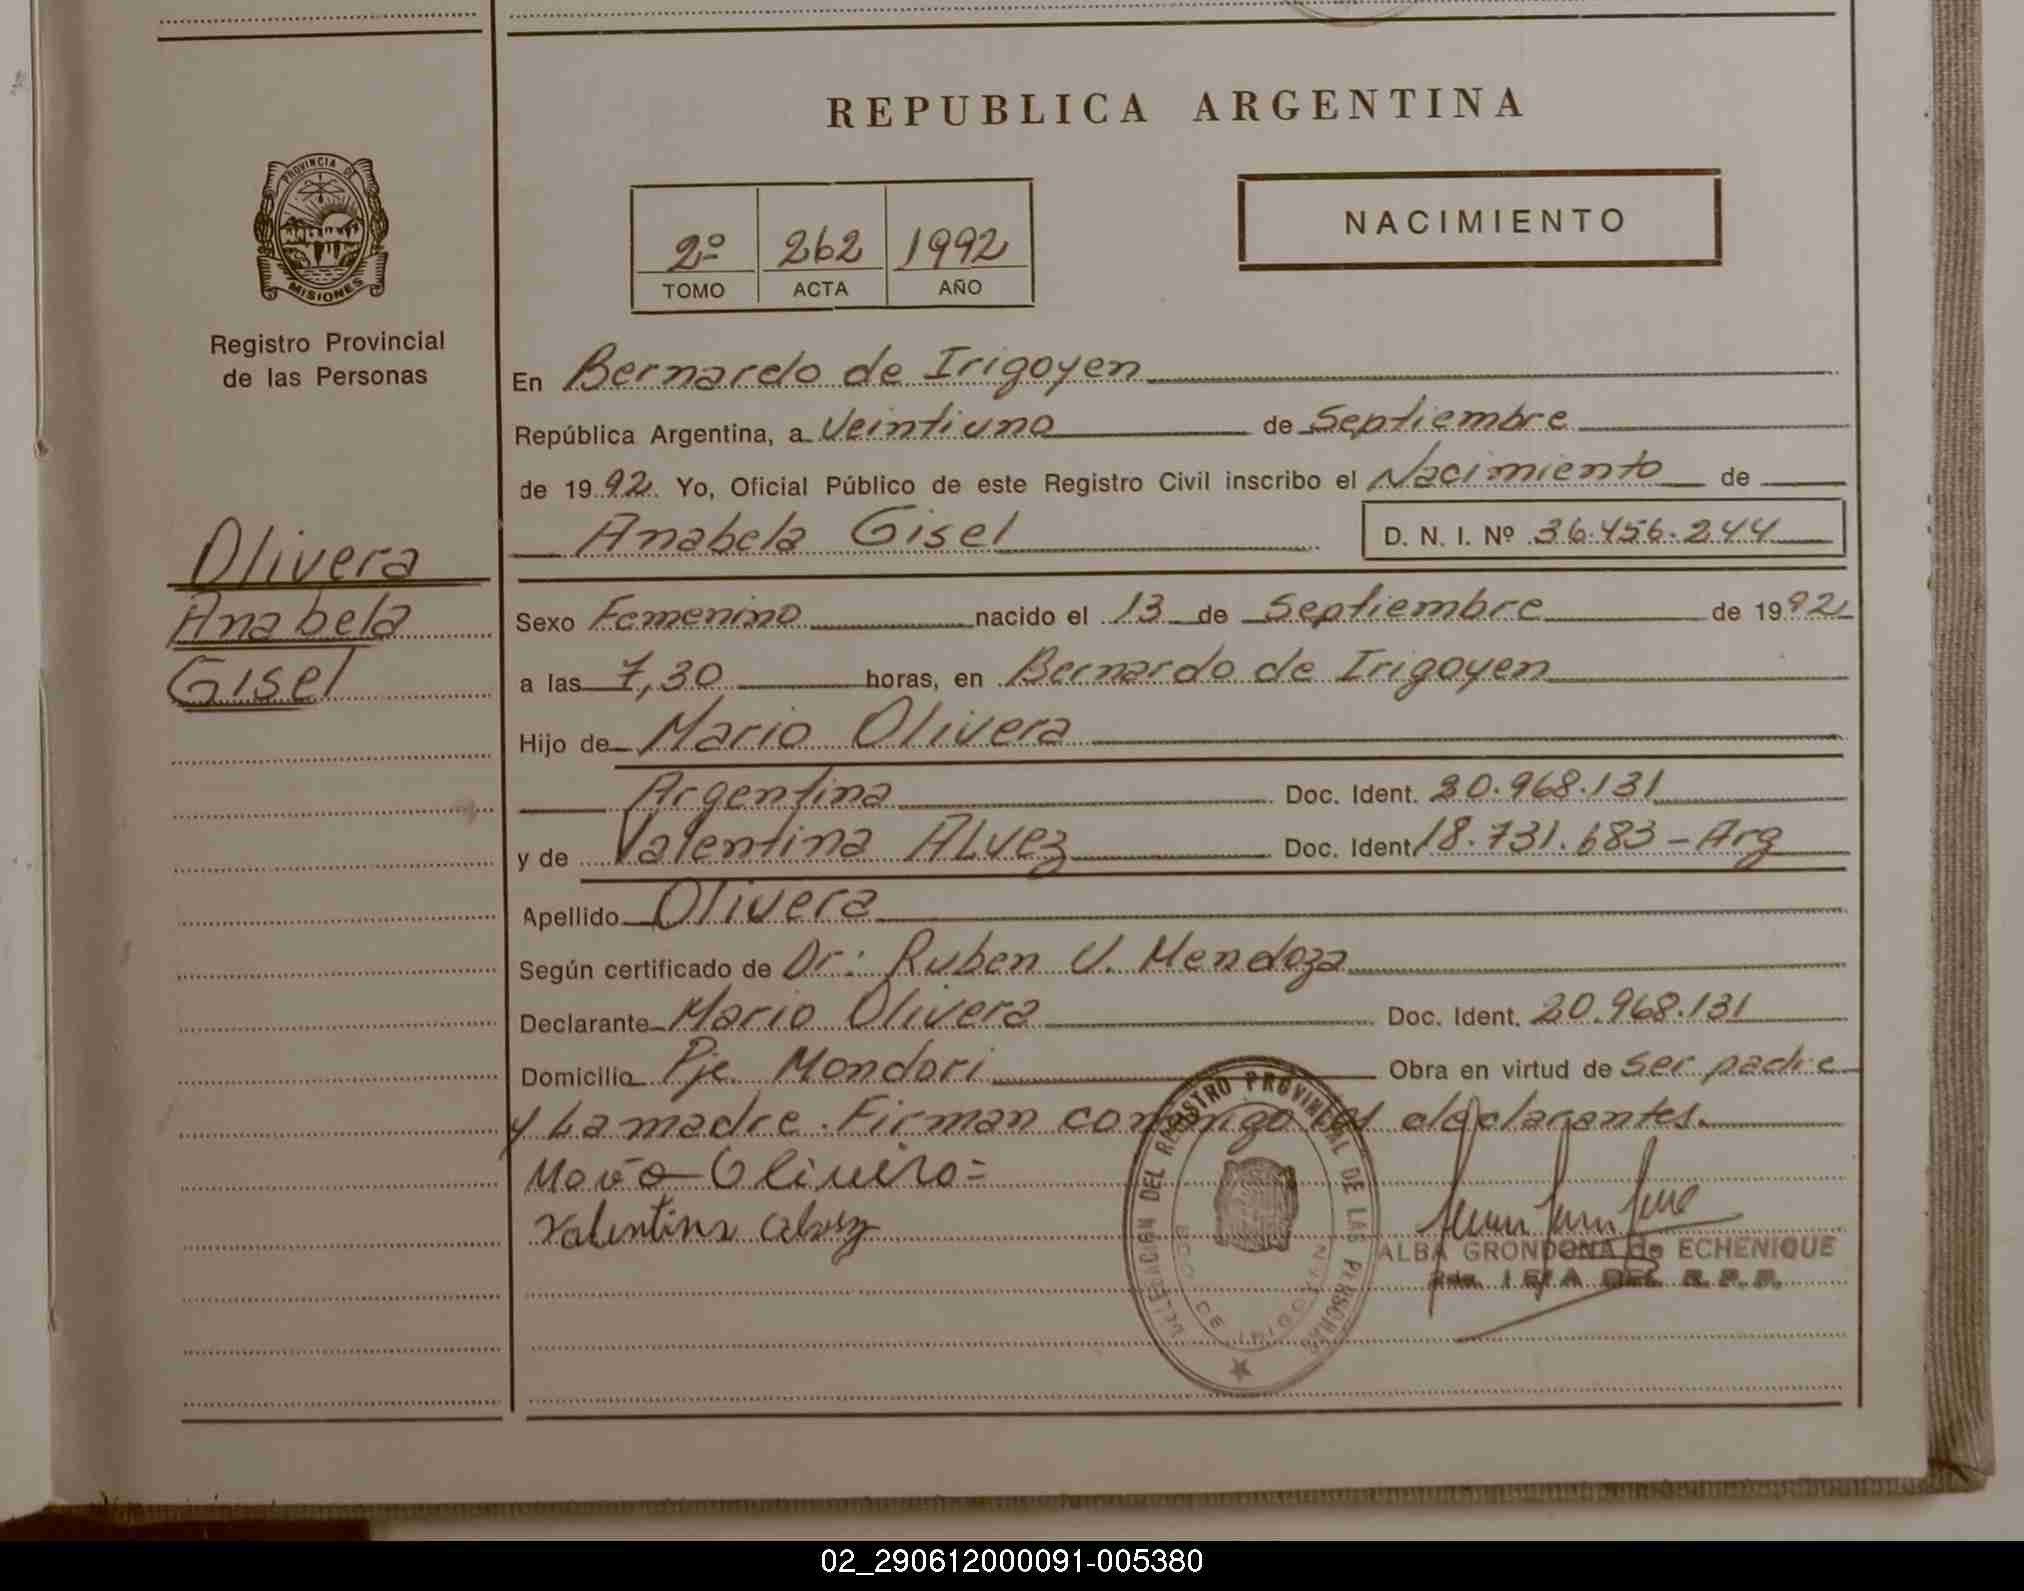 REPUBLICA ARGENTINA
PROVINCIA DE
MISIONES
Registro Provincial
de las Personas
2º 262 1992
TOMO ACTA AÑO
NACIMIENTO
En Bernardo de Irigoyen
República Argentina, a Veintiuno de Septiembre
de 1992. Yo, Oficial Público de este Registro Civil inscribo el Nacimiento de
Anabela Gisel D. N. I. Nº 36.456.244
Olivera
Anabela
Gisel
Sexo Femenino nacido el 13 de Septiembre de 1992
a las 7,30 horas, en Bernardo de Irigoyen
Hijo de Mario Olivera
Argentina Doc. Ident. 20.968.131
y de Valentina ALvez Doc. Ident. 18.731.683 - Arg
Apellido Olivera
Según certificado de Dr: Ruben V. Mendoza
Declarante Mario Olivera Doc. Ident. 20.968.131
Domicilio Pje. Mondori Obra en virtud de ser padre
y La madre. Firman conmigo los declarantes.
Valentina
DELEGACION DEL REGISTRO PROVINCIAL DE LAS PERSONAS
BDO DE IRIGOYEN
ALBA GRONDONA de ECHENIQUE
DEL R.P.P.
02_290612000091-005380